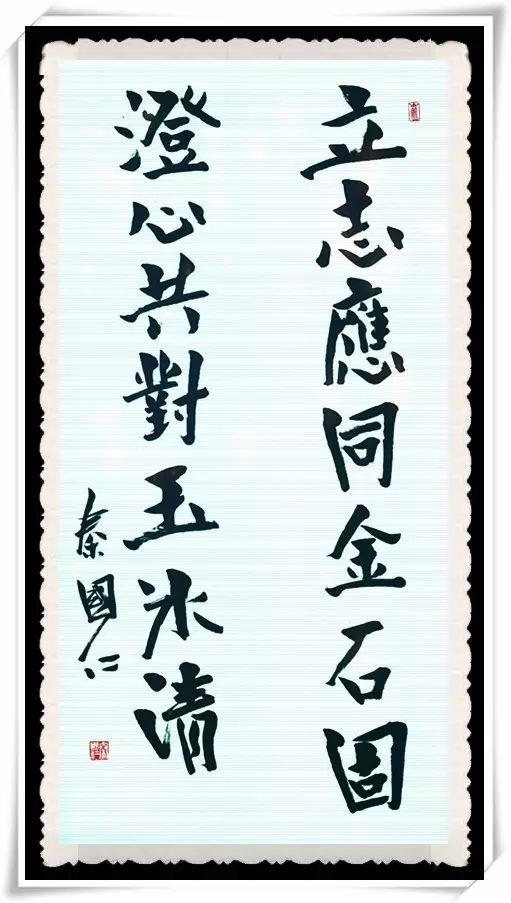 立志應同金石固
澄心共對玉冰清
秦國仁